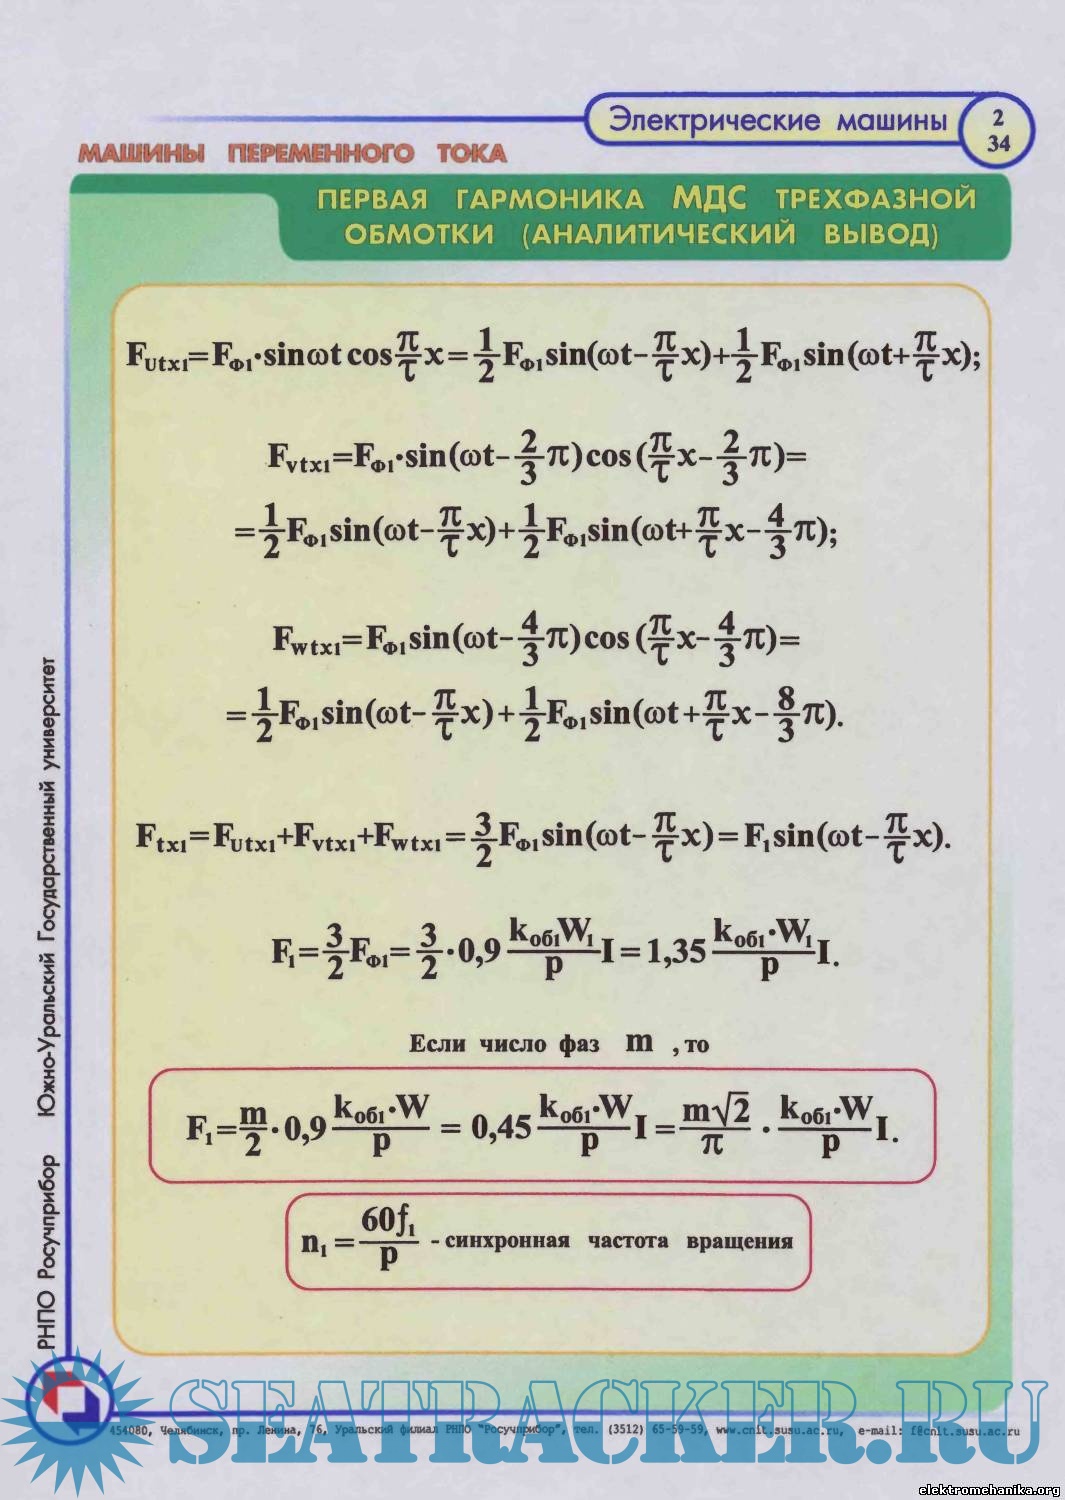 Электрические машины
2
34
МАШИНЫ ПЕРЕМЕННОГО ТОКА
ПЕРВАЯ ГАРМОНИКА МДС ТРЕХФАЗНОЙ
ОБМОТКИ (АНАЛИТИЧЕСКИЙ ВЫВОД)
F_Utx1=F_Ф1·sinωt cos π/τ x = 1/2 F_Ф1 sin(ωt- π/τ x)+ 1/2 F_Ф1 sin(ωt+ π/τ x);
F_vtx1=F_Ф1·sin(ωt- 2/3 π)cos(π/τ x- 2/3 π)=
= 1/2 F_Ф1 sin(ωt- π/τ x)+ 1/2 F_Ф1 sin(ωt+ π/τ x- 4/3 π);
F_wtx1=F_Ф1 sin(ωt- 4/3 π)cos(π/τ x- 4/3 π)=
= 1/2 F_Ф1 sin(ωt- π/τ x)+ 1/2 F_Ф1 sin(ωt+ π/τ x- 8/3 π).
F_tx1=F_Utx1+F_vtx1+F_wtx1= 3/2 F_Ф1 sin(ωt- π/τ x)=F_1 sin(ωt- π/τ x).
F_1= 3/2 F_Ф1= 3/2 ·0,9 k_об1 W_1/p I=1,35 k_об1·W_1/p I.
Если число фаз m , то
F_1= m/2 ·0,9 k_об1·W/p = 0,45 k_об1·W/p I = m√2/π · k_об1·W/p I.
n_1 = 60f_1/p - синхронная частота вращения
РНПО Росучприбор Южно-Уральский Государственный университет
SEATRACKER.RU
454080, Челябинск, пр. Ленина, 76, Уральский филиал РНПО "Росучприбор", тел. (3512) 65-59-59, www.cnit.susu.ac.ru, e-mail: f@cnit.susu.ac.ru
elektromehanika.org